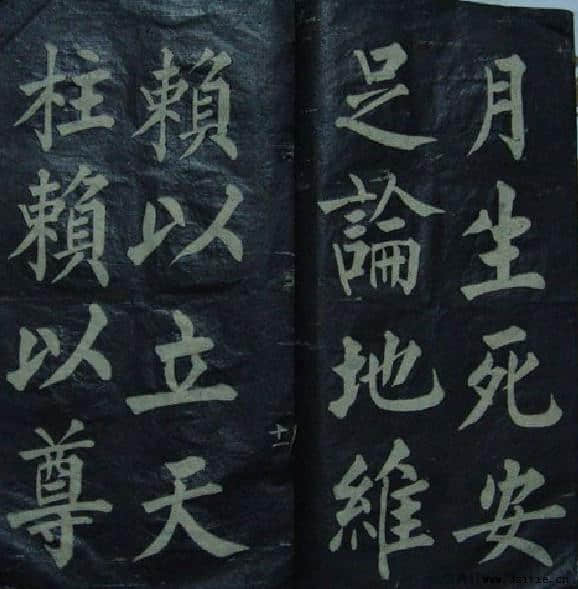 月生死安
足論地維
賴以立天
柱賴以尊
十一